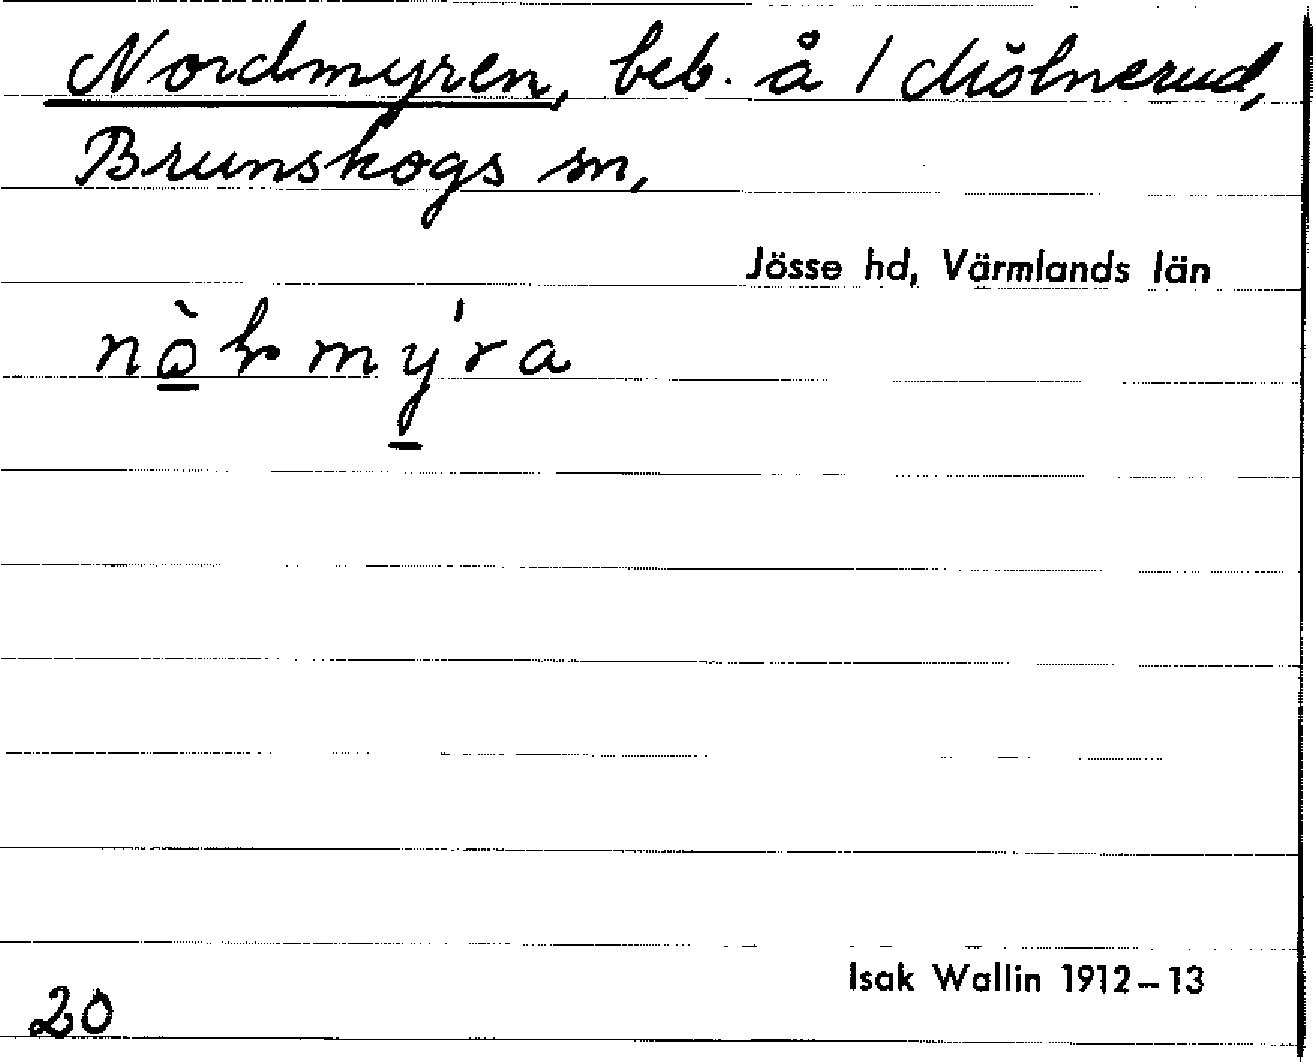 Nordmyren, beb. å 1 Mölnerud,
Brunskogs sn,
Jösse hd, Värmlands län
Isak Wallin 1912–13
20